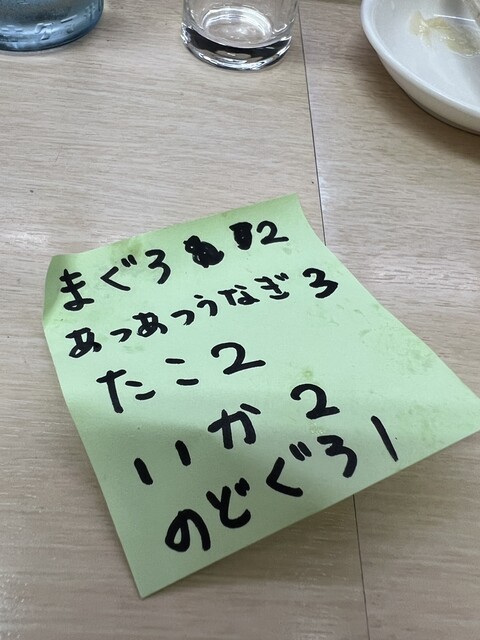 まぐろ 2
あつあつうなぎ 3
たこ 2
いか 2
のどぐろ 1